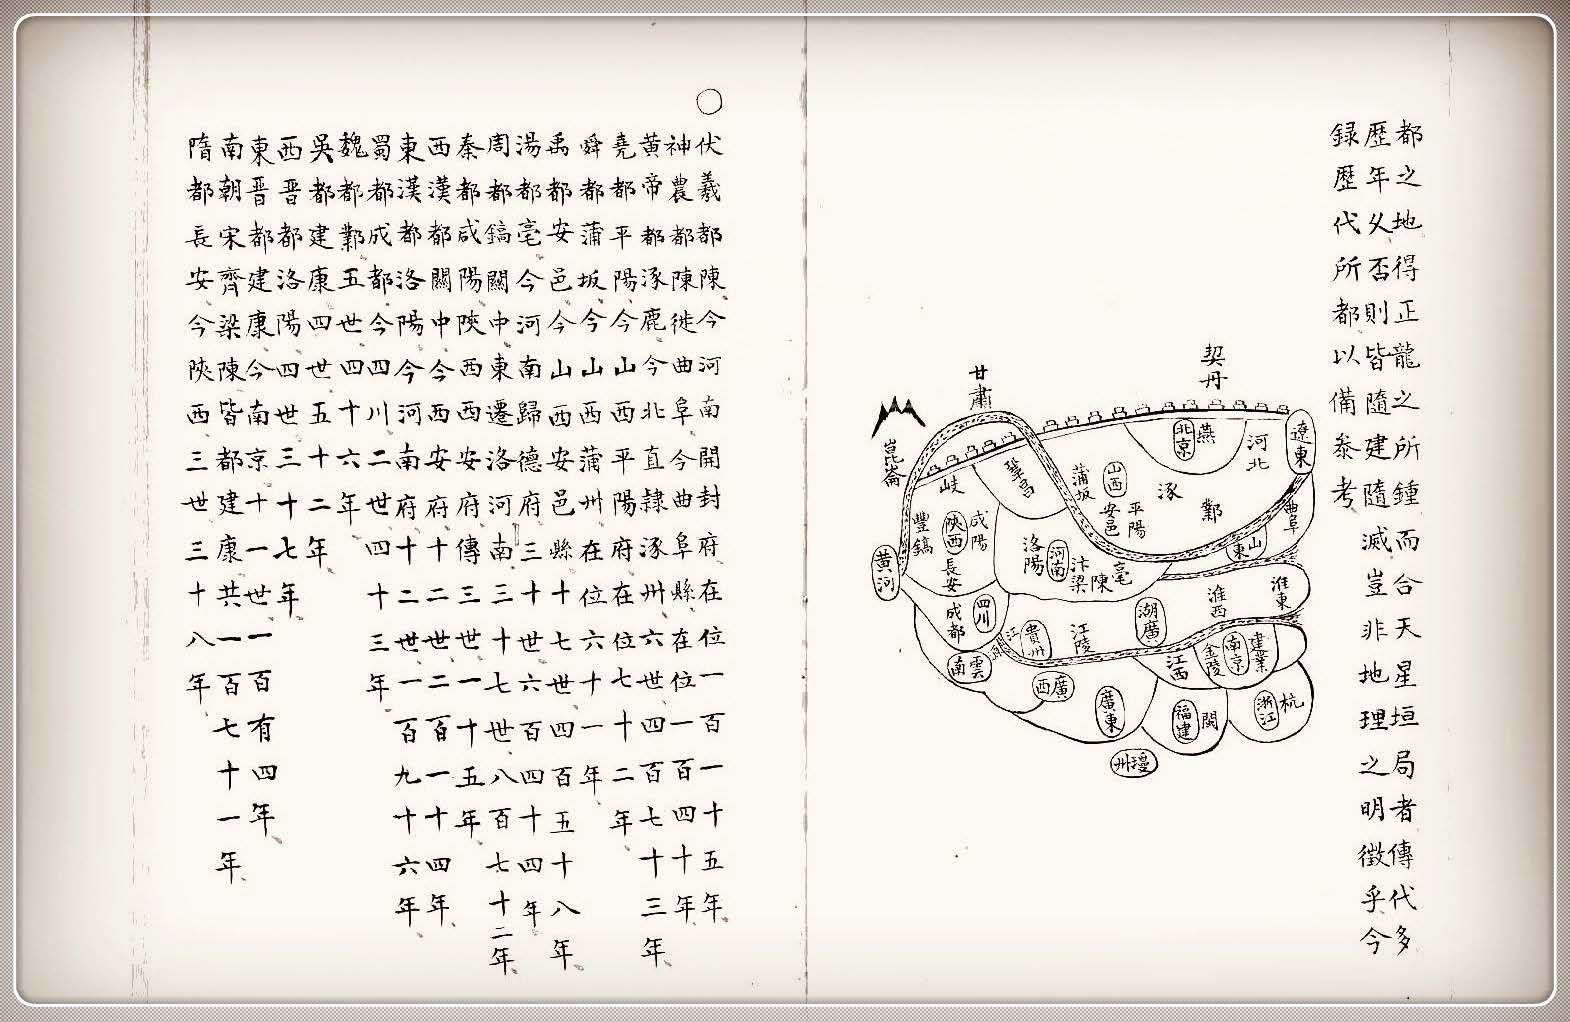 都之地得正龍之所鍾而合天星垣局者傳代多
歷年久否則皆隨建隨滅豈非地理之明徵乎今
録歷代所都以備叅考
契丹
甘肅
崑崙
遼東
河北
燕
北京
山西
蒲坂
安邑
平陽
涿
鄴
曲阜
山東
鞏昌
岐
豐鎬
陝西
咸陽
長安
黄河
洛陽
河南
汴梁
陳
亳
淮東
淮西
湖廣
江陵
貴州
江
四川
成都
雲南
廣西
廣東
江西
金陵
南京
建業
福建
閩
浙江
杭
瓊州
○
伏羲都陳今河南開封府在位一百一十五年
神農都陳徙曲阜今曲阜縣在位一百四十年
黃帝都涿鹿今北直隷涿州六世四百七十三年
堯都平陽今山西平陽府在位七十二年
舜都蒲坂今山西蒲州在位六十一年
禹都安邑今山西安邑縣十七世四百五十八年
湯都亳今河南歸德府三十世六百四十四年
周都鎬關中東遷洛河南三十七世八百七十二年
秦都咸陽陝西西安府傳三世一十五年
西漢都關中今西安府十二世二百一十四年
東漢都洛陽今河南府十二世一百九十六年
蜀都成都今四川二世四十三年
魏都鄴五世四十六年
吳都建康四世五十二年
西晉都洛陽四世三十七年
東晉都建康今南京十一世一百有四年
南朝宋齊梁陳皆都建康共一百七十一年
隋都長安今陝西三世三十八年